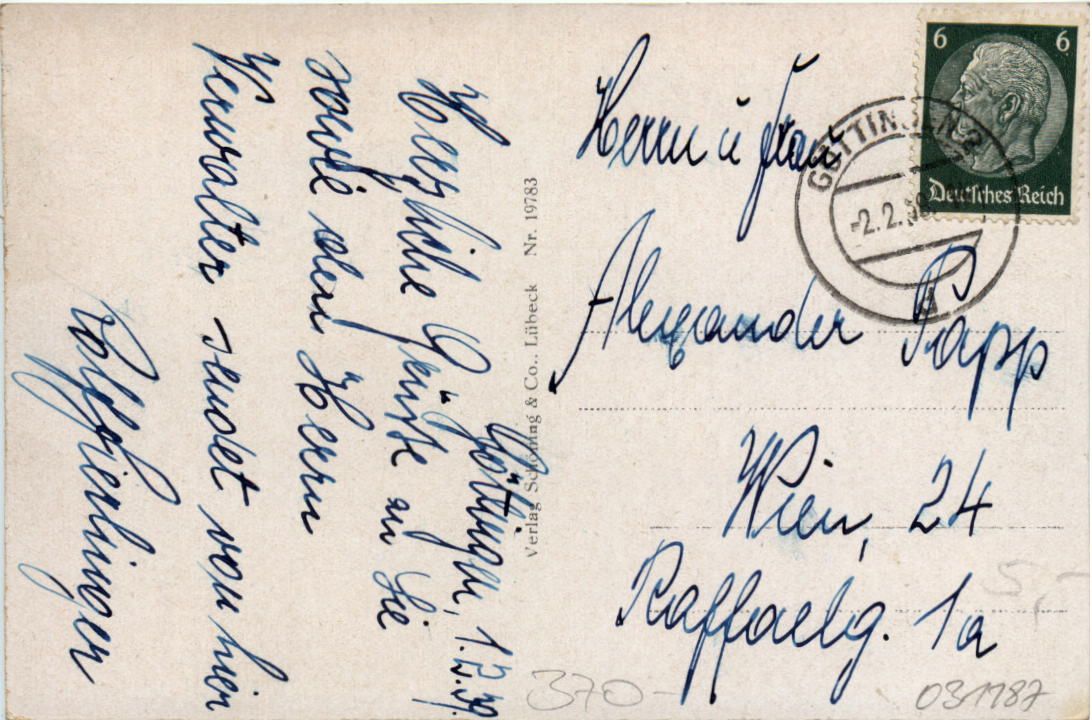 Göttingen, 1.2.39.
Herzliche Grüße an Sie
sowie den Herrn
Verwalter sendet von hier
Verlag Schöning & Co., Lübeck Nr. 19783
6 6
Deutsches Reich
GÖTTINGEN 2
-2.2.39
d
Herrn u Frau
Alexander Papp
Wien, 24
Raffaelg. 1a
370-
031187